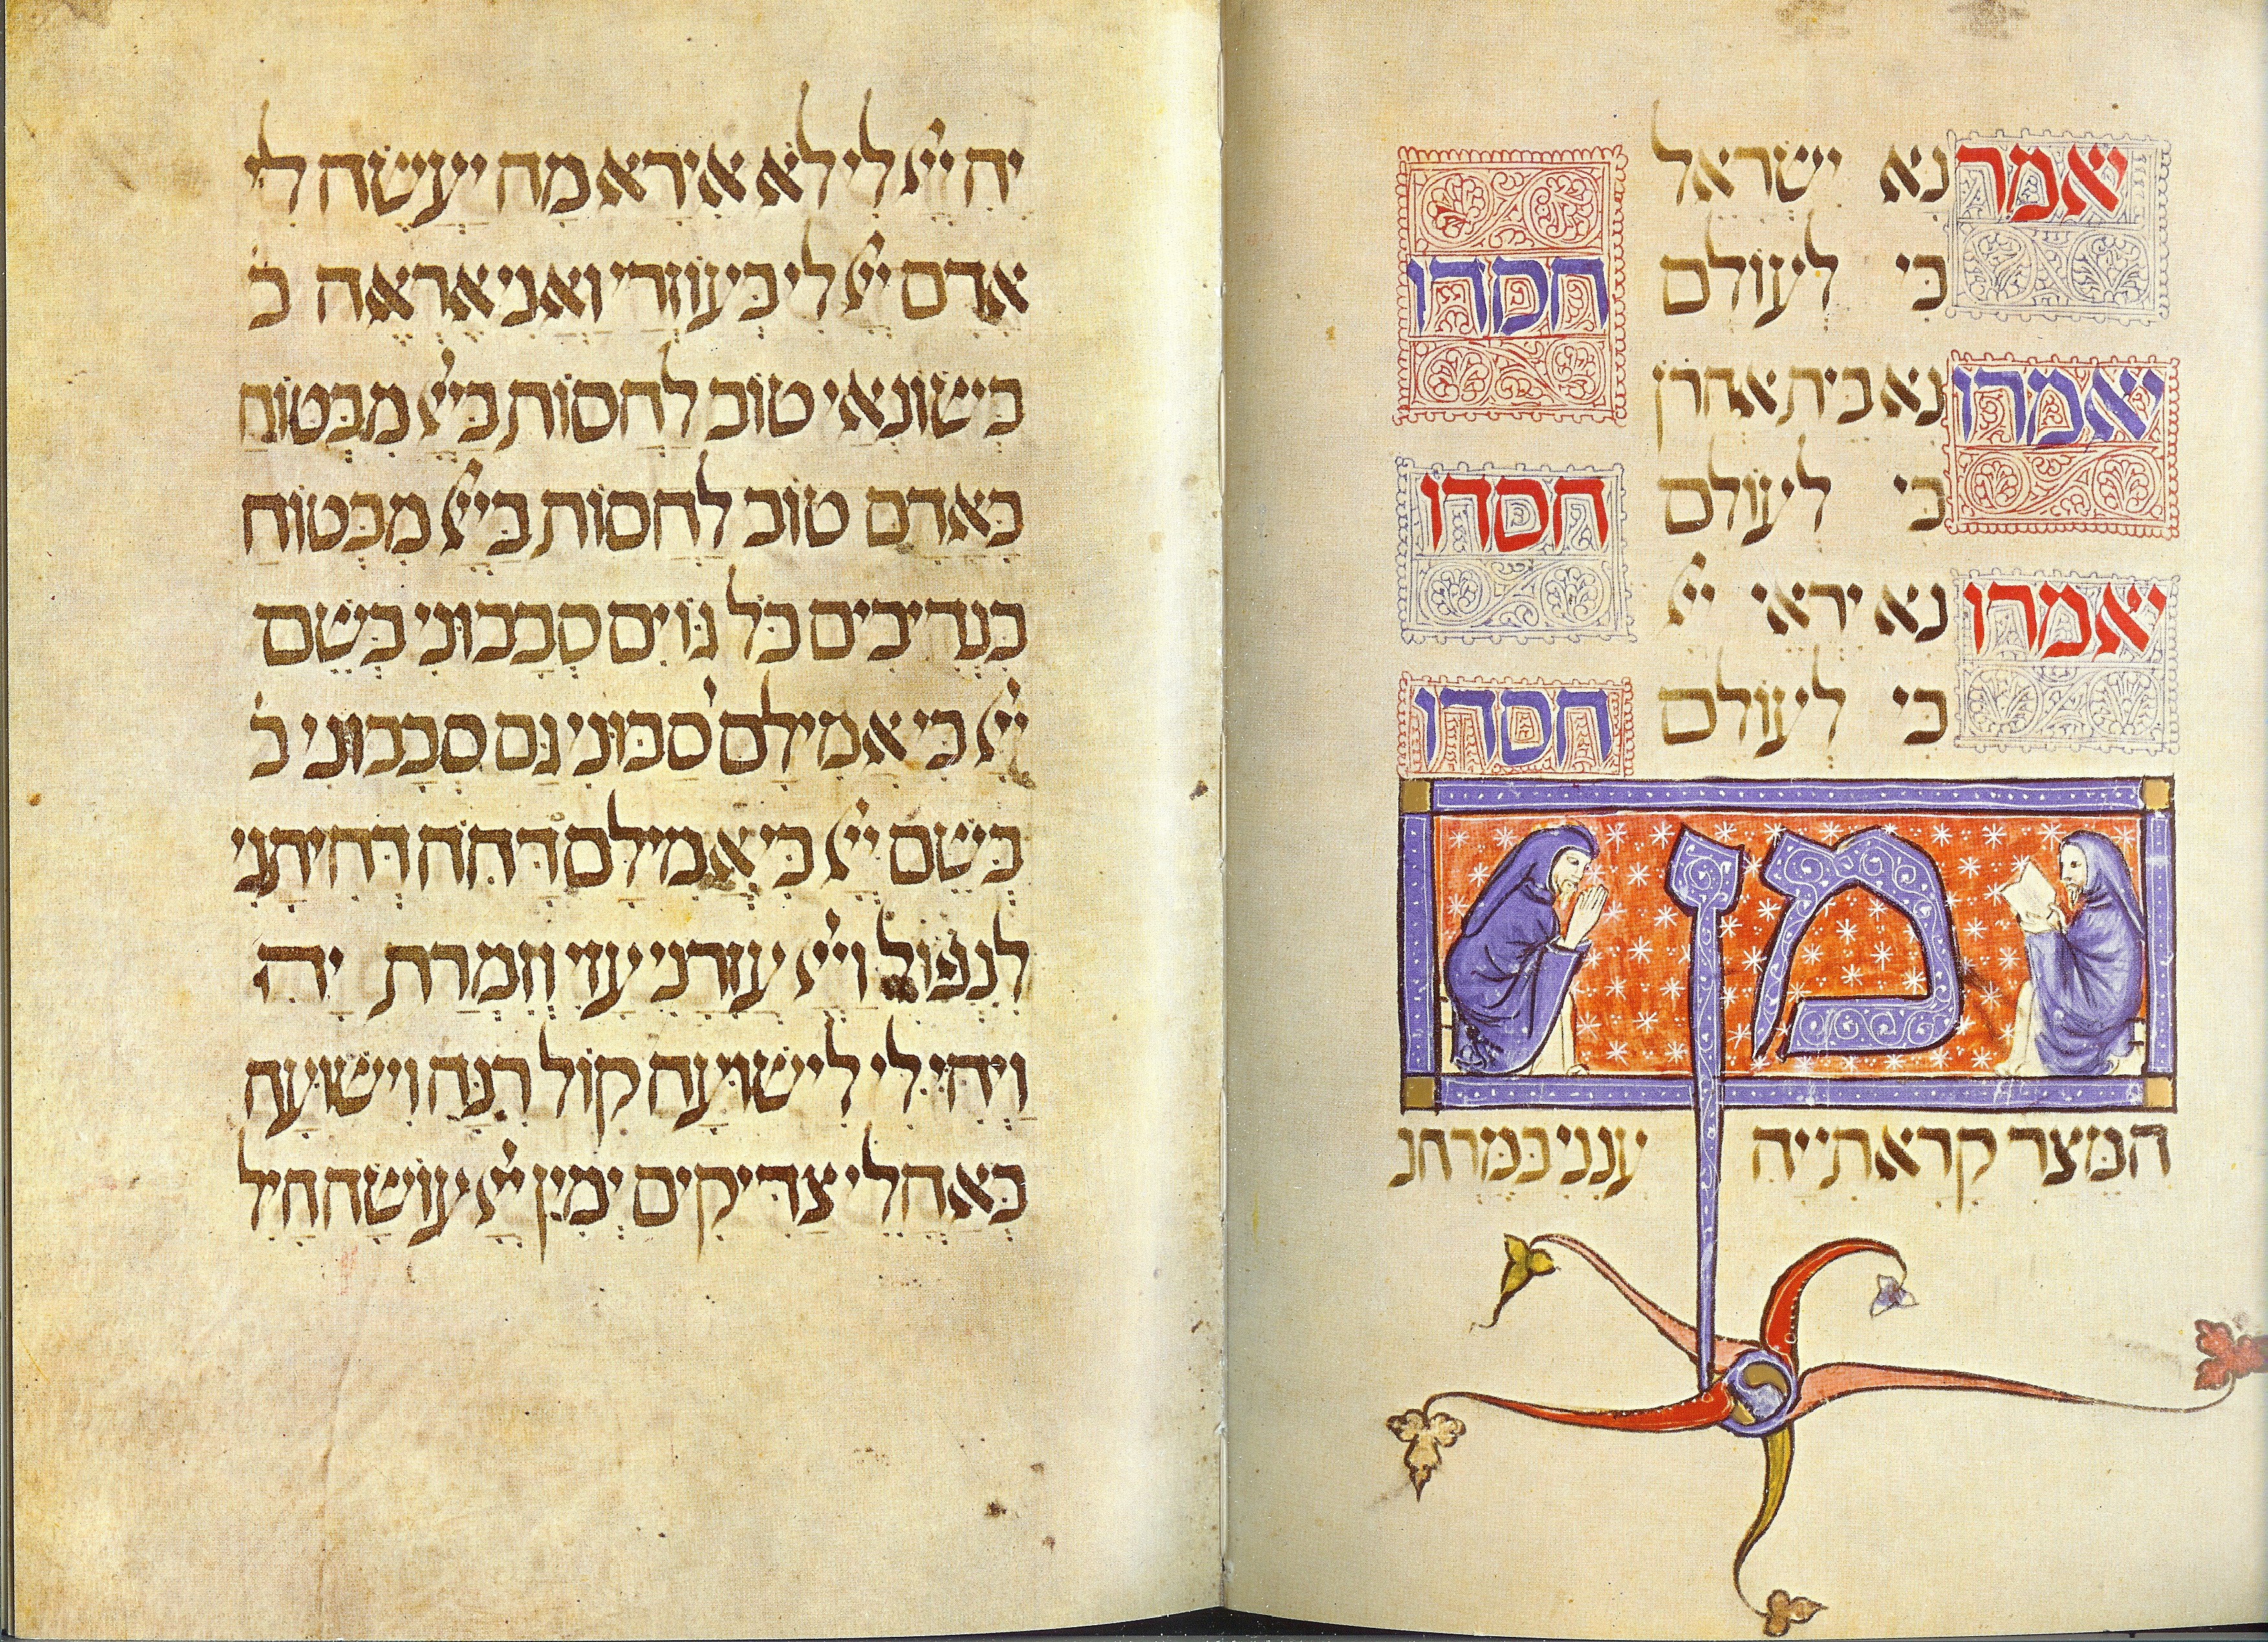 יאמר נא ישראל
כי לעולם חסדו
יאמרו נא בית אהרן
כי לעולם חסדו
יאמרו נא יראי ייי
כי לעולם חסדו
מן
המצר קראתי יה ענני במרחב
יה ייי לי לא אירא מה יעשה לי
אדם ייי לי בעוזרי ואני אראה ב
בשונאי טוב לחסות בייי מבטוח
באדם טוב לחסות בייי מבטוח
בנדיבים כל גוים סבבוני בשם
ייי כי אמילם סבוני גם סבבוני ב
בשם ייי כי אמילם דחה דחיתני
לנפול וייי עזרני עזי וזמרת יה
ויהי לי לישועה קול רנה וישועה
באהלי צדיקים ימין ייי עושה חיל